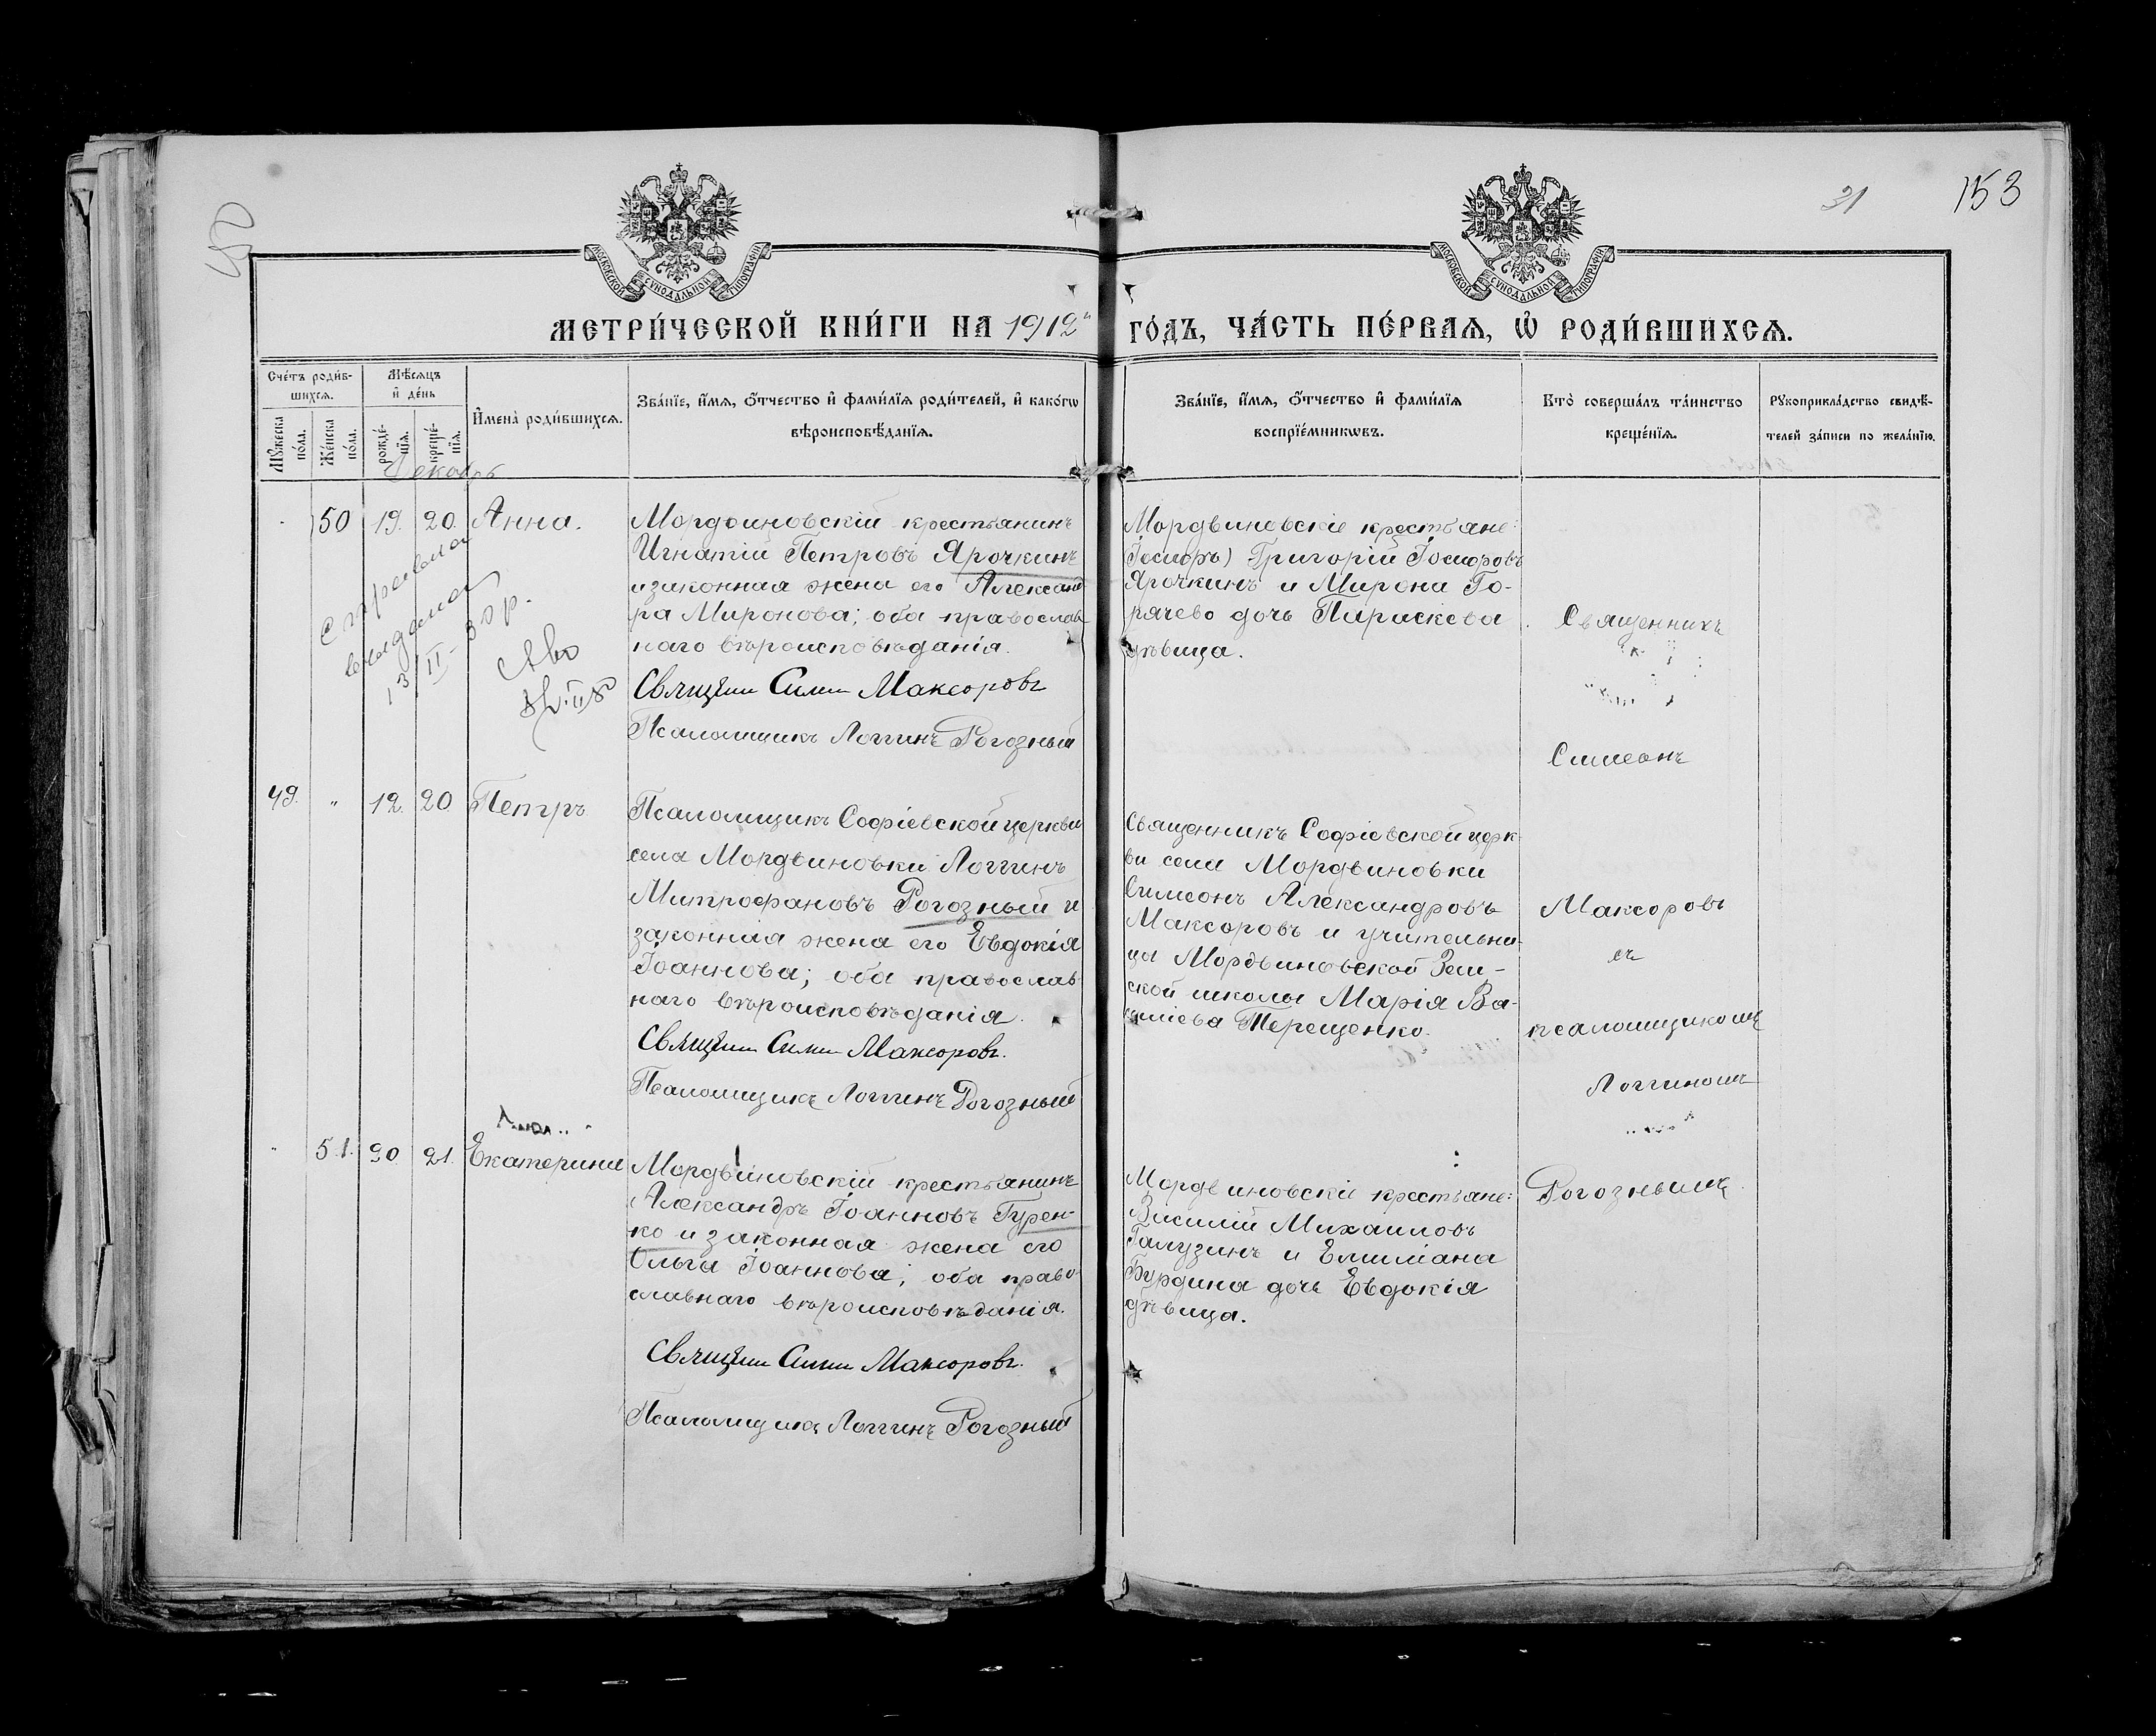 21
153
МОСКОВСКОЙ СѴНОДАЛЬНОЙ ТИПОГРАФІИ
МОСКОВСКОЙ СѴНОДАЛЬНОЙ ТИПОГРАФІИ
МЕТРИ́ЧЕСКОЙ КНИ́ГИ НА 1912
ГО́ДЪ, ЧА́СТЬ ПЕ́РВАѦ, Ѽ РОДИ́ВШИХСѦ.
Сче́тъ роди́в-
шихсѧ.
Мꙋ́жеска по́ла.
Же́нска по́ла.
Мѣ́сѧцъ
и҆ де́нь
рожде́-
нїѧ.
креще́-
нїѧ.
И҆мена̀ роди́вшихсѧ.
Зва́нїе, и҆́мѧ, ѻ҆́тчество и҆ фами́лїѧ роди́телей, и҆ како́гѡ
вѣроисповѣ́данїѧ.
Зва́нїе, и҆́мѧ, ѻ҆́тчество и҆ фами́лїѧ
воспрїе́мникѡвъ.
Кто̀ соверша́лъ та́инство
креще́нїѧ.
Рꙋкоприкла́дство свидѣ́-
телей за́писи по жела́нїю.
Декабрь
50 19. 20. Анна.
справка
выдана
13/II-
Мордвиновскій крестьянинъ
Игнатій Петровъ Ярочкинъ
и законная жена его Александ
ра Миронова; оба православ
наго вѣроисповѣданія.
Священ Симе Максоровъ
Псаломщикъ Логгинъ Рогозный
Мордвиновскіе крестьяне:
(Іосифъ) Григорій Іосифовъ
Ярочкинъ и Мирона Го-
рячево дочь Параскева
дѣвица.
Священникъ
Симеонъ
Максоровъ
съ
псаломщикомъ
Логгиномъ
Рогознымъ
49. " 12. 20. Петръ
Псаломщикъ Софіевской церкви
села Мордвиновки Логгинъ
Митрофановъ Рогозный и
законная жена его Евдокія
Іоаннова; оба православ
наго вѣроисповѣданія.
Священ Симе Максоровъ.
Псаломщикъ Логгинъ Рогозный
Священникъ Софіевской церк
ви села Мордвиновки
Симеонъ Александровъ
Максоровъ и учительни-
ца Мордвиновской Зем-
ской школы Марія Ва-
силіева Терещенко.
" 51. 20. 21. Екатерина
Мордвиновскій крестьянинъ
Александръ Іоанновъ Гурен-
ко и законная жена его
Ольга Іоаннова; оба право
славнаго вѣроисповѣданія.
Священ Симе Максоровъ.
Псаломщикъ Логгинъ Рогозный
Мордвиновскіе крестьяне:
Василій Михаиловъ
Галузинъ и Емиліана
Бурдина дочь Евдокія
дѣвица.